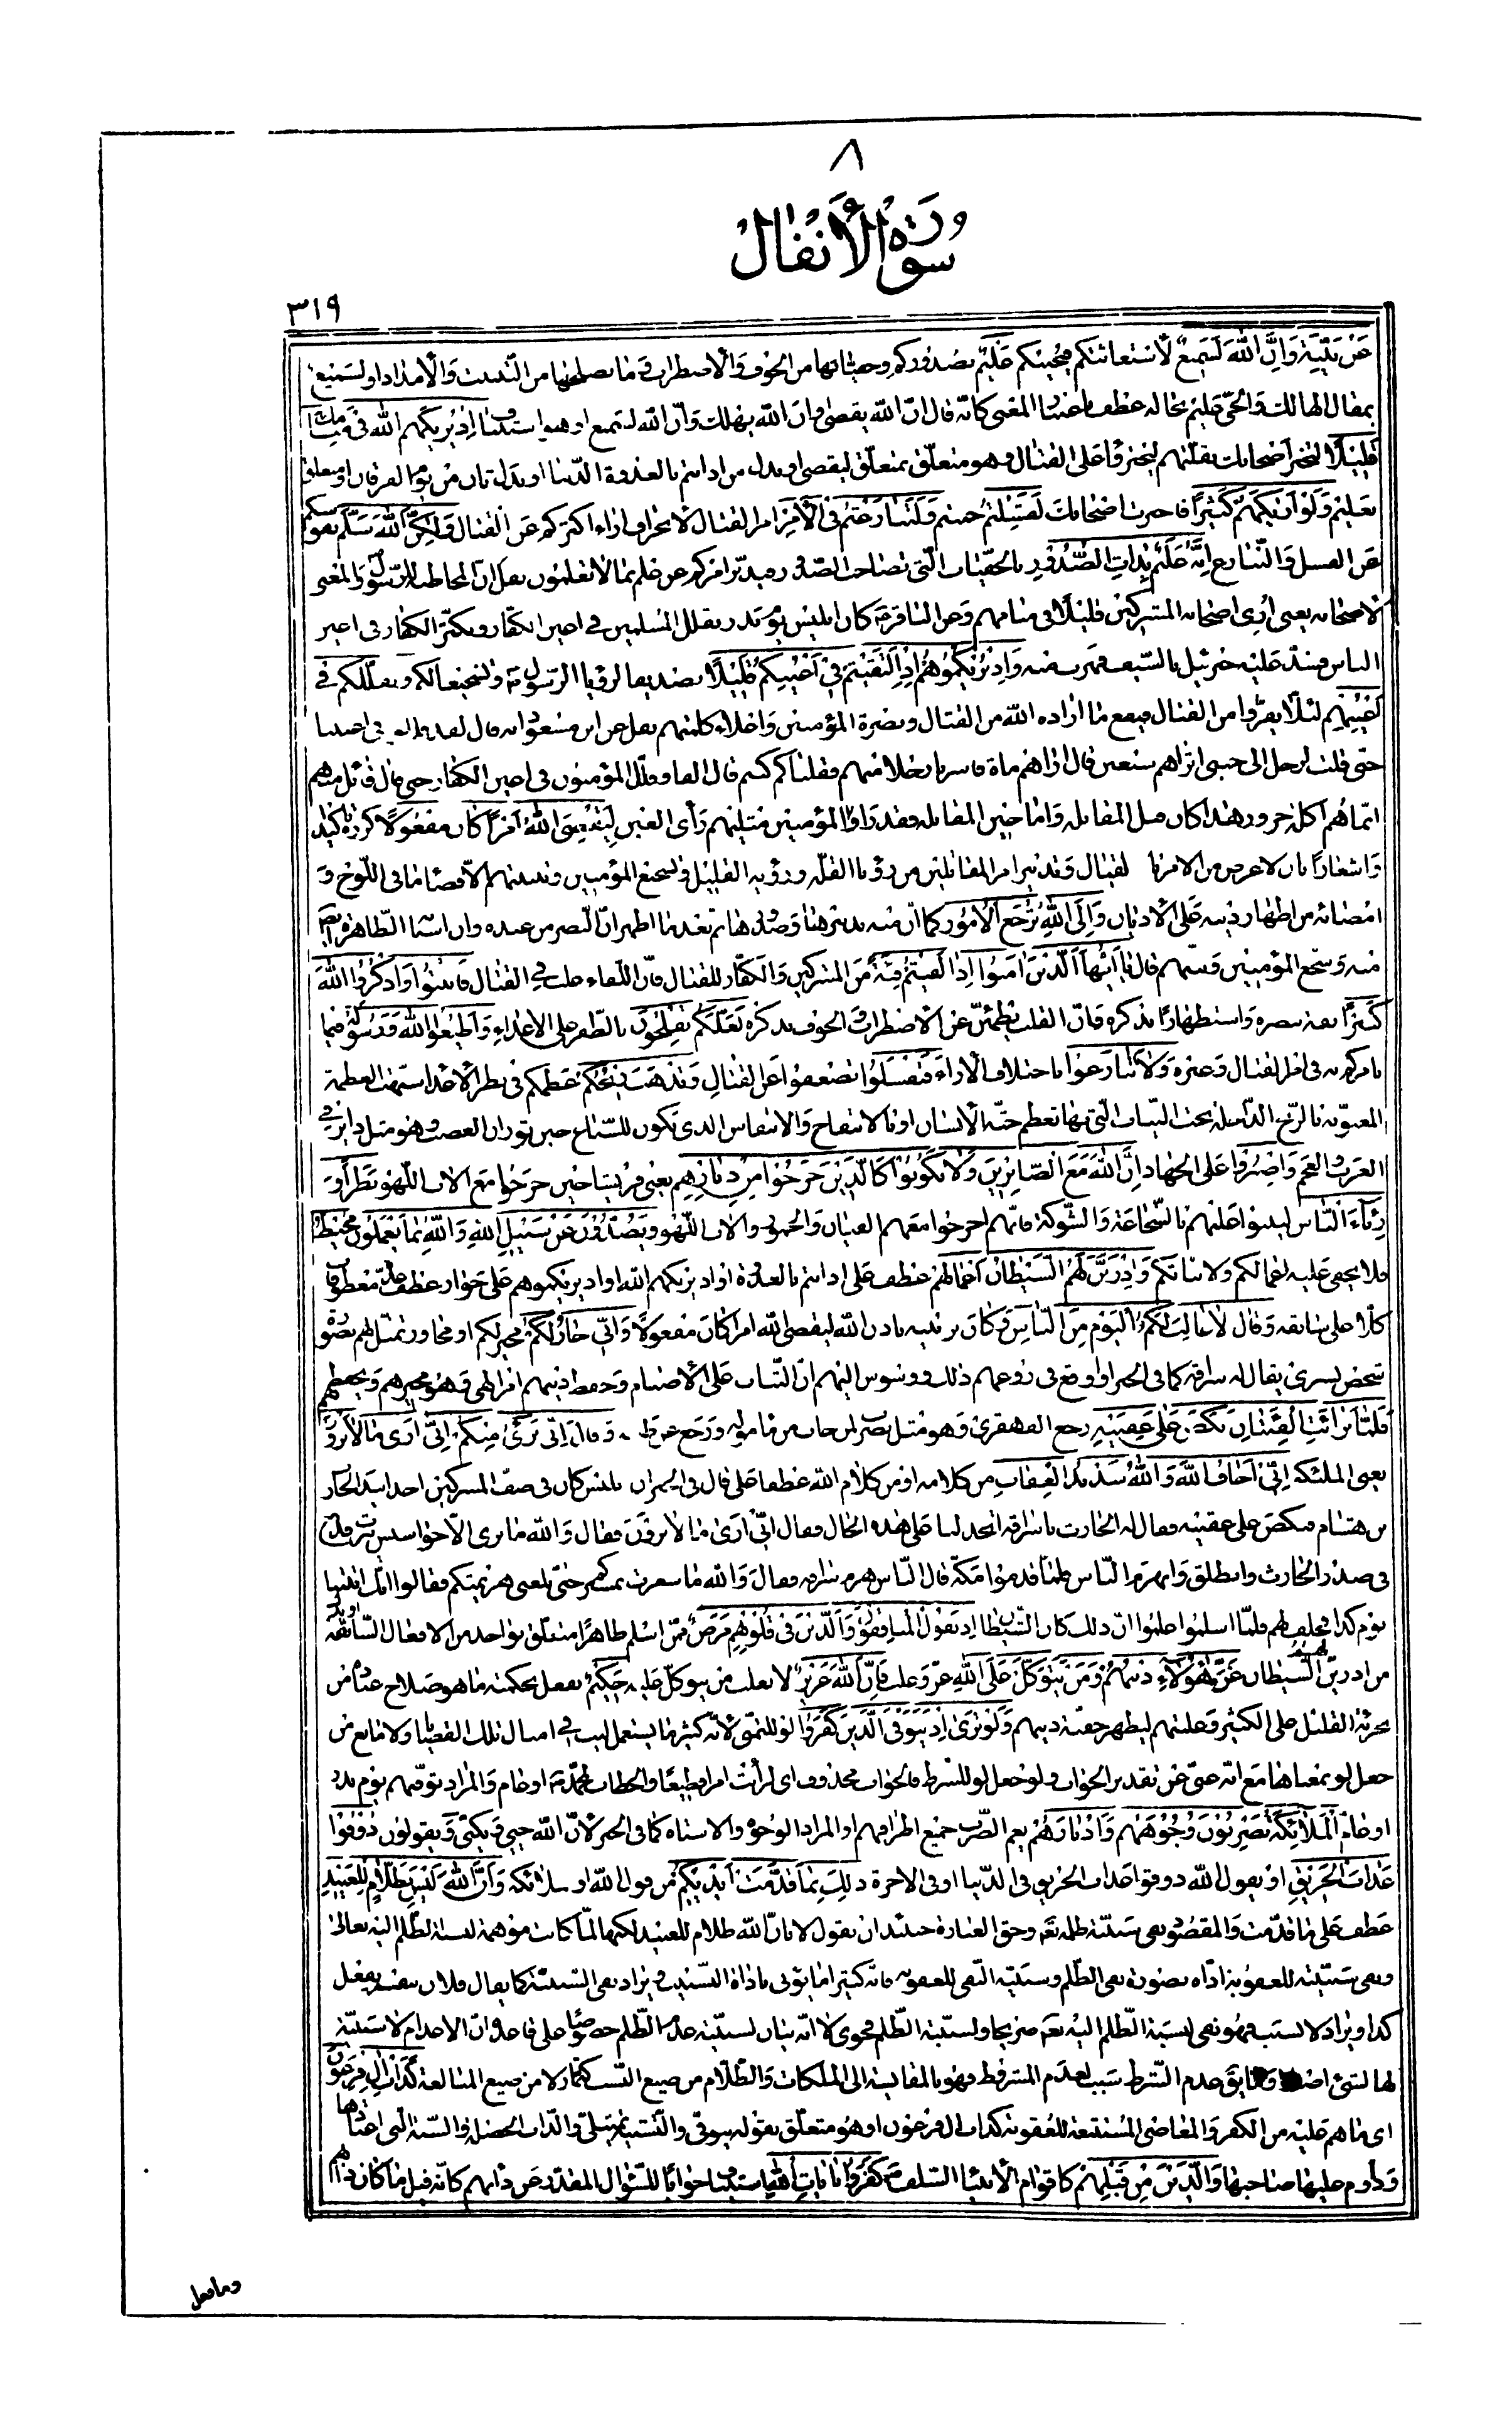 ٨
سورة الأنفال
٣١٩
عَنْ بَيِّنَةٍ وَإِنَّ اللهَ لَسَمِيعٌ لاستغاثتكم فيجيبكم عَلِيمٌ بصدوركم وحثياتها من الخوف والاضطراب فى ما يصلحها من التثبيت والامداد او لسميع
بمقال الهالك والحىّ عليم بحاله عطف باعتبار المعنى كانّه قال انّ الله يقضى وانّ الله يهلك وانّ الله لسميع او هو استيناف إِذْ يُرِيكَهُمُ اللهُ فِى مَنامِكَ
قَلِيلاً لتخبر أصحابك بقلّتهم ليجترؤا على القتال وهو متعلّق بمتعلّق ليقضى او بدل من اذ انتم بالعدوة الدّنيا او بدل ثان من يوم الفرقان او متعلّق
بعليم وَلَوْ أَراكَهُمْ كَثِيراً فاخبرت اصحابك لَفَشِلْتُمْ جبنتم وَلَتَنازَعْتُمْ فِى الْأَمْرِ امر القتال لانحراف اراء اكثركم عن القتال وَلكِنَّ اللهَ سَلَّمَ نفوسكم
عن الفشل والتّنازع إِنَّهُ عَلِيمٌ بِذاتِ الصُّدُورِ بالخفيّات الّتى تصاحب الصّدور فيدبّر امركم عن علم بما لا تعلمون نقل انّ المخاطب للرّسول والمعنى
لاصحابه يعنى أرى اصحابه المشركين قليلاً فى منامهم وعن الباقر كان ابليس يوم بدر يقلل المسلمين فى اعين الكفّار ويكثّر الكفّار فى اعين
الناس فشدّ عليه جبرئيل بالسّيف فهرب منه وَإِذْ يُرِيكُمُوهُمْ إِذِ الْتَقَيْتُمْ فِى أَعْيُنِكُمْ قَلِيلاً تصديقا لرؤيا الرّسول وتشجيعا لكم وَيُقَلِّلُكُمْ فِى
أَعْيُنِهِمْ لئلّا يفرّوا من القتال فيقع ما اراده الله من القتال ونصرة المؤمنين واعلاء كلمتهم نقل عن ابن مسعود انه قال لقد قلّلوا فى اعيننا
حتّى قلت لرجل الى جنبى اتراهم سبعين قال اراهم مأة فاسرنا رجلا منهم فقلنا كم كنتم قال الفا وقلّل المؤمنون فى اعين الكفّار حتى قال قائل منهم
انّما هم اكلة جزور هذا كان قبل المقابلة وامّا حين المقابلة فقد رأوا المؤمنين مثليهم رأى العين لِيَقْضِيَ اللهُ أَمْراً كانَ مَفْعُولاً كرّره تأكيدا
واشعارا بان لا غرض من الامر بالقتال وتدبير امر المقاتلين من رؤيا القلّة ورؤية القليل وتشجيع المؤمنين وتثبيتهم الّا قضاء ما فى اللّوح و
امضائه من اظهار دينه على الاديان وَإِلَى اللهِ تُرْجَعُ الْأُمُورُ كما انّ منه بدئ هنا وصدورها ثمّ بعد ما اظهر انّ النّصر من عنده وان اسبابها الظاهرة ايضا
منه وشجّع المؤمنين وسلّاهم قال يا أَيُّهَا الَّذِينَ آمَنُوا إِذا لَقِيتُمْ فِئَةً من المشركين والكفّار للقتال فانّ اللّقاء غلب فى القتال فَاثْبُتُوا وَاذْكُرُوا اللهَ
كَثِيراً ثقة بنصره واستظهارا بذكره فانّ القلب يطمئنّ عن الاضطراب والخوف بذكره لَعَلَّكُمْ تُفْلِحُونَ بالظّفر على الاعداء وَأَطِيعُوا اللهَ وَرَسُولَهُ فيما
يأمركم به فى امر القتال وغيره وَلا تَنازَعُوا باختلاف الآراء فَتَفْشَلُوا تضعفوا عن القتال وَتَذْهَبَ رِيحُكُمْ عظمكم فى نظر الاعداء استعيرت العظمة
المعنويّة بالرّيح الدّاخلة تحت الثياب الّتى بها تعظم جثّة الانسان او بالانتفاخ والانتفاس الذى يكون للسّباع حين ثوران الغضب وهو مثل دائر فى
العرب والعجم وَاصْبِرُوا على الجهاد إِنَّ اللهَ مَعَ الصَّابِرِينَ وَلا تَكُونُوا كَالَّذِينَ خَرَجُوا مِنْ دِيارِهِمْ يعنى قريشا حين خرجوا مع الات اللّهو بَطَراً وَ
رِئاءَ النَّاسِ ليثنوا عليهم بالشّجاعة والشّوكة فانّهم اخرجوا معهم القيان والخمور والات اللّهو وَيَصُدُّونَ عَنْ سَبِيلِ اللهِ وَاللهُ بِما يَعْمَلُونَ مُحِيطٌ
فلا يخفى عليه اعمالكم ولا نيّاتكم وَإِذْ زَيَّنَ لَهُمُ الشَّيْطانُ أَعْمالَهُمْ عطف على اذ انتم بالعدوة او اذ يريكهم الله او اذ يريكموهم على جواز عطف عدّة معطوفات
كلّا على سابقه وَقالَ لا غالِبَ لَكُمُ الْيَوْمَ مِنَ النَّاسِ وكان تزيينه باذن الله ليقضى الله امرا كان مفعولا وَإِنِّى جارٌ لَكُمْ مجير لكم او مجاور تمثّل لهم بصورة
شخص بشرى يقال له سراقة كما فى الخبر او اوقع فى روعهم ذلك ووسوس اليهم انّ الثّبات على الاصنام وحفظ دينهم امر الهى وهو مجيرهم ويحفظهم
فَلَمَّا تَراءَتِ الْفِئَتانِ نَكَصَ عَلى عَقِبَيْهِ رجع القهقرى وهو مثل يضرب لمن خاب من مأموله ورجع عن طلبه وَقالَ إِنِّى بَرِيءٌ مِنْكُمْ إِنِّى أَرى ما لا تَرَوْنَ
يعنى الملئكة إِنِّى أَخافُ اللهَ وَاللهُ شَدِيدُ الْعِقابِ من كلامه او من كلام الله عطفا على قال فى الخبر ان ابليس كان فى صفّ المشركين اخذا بيد الحارث
بن هشام فنكص على عقبيه فقال له الحارث يا سراقة اتخذلنا على هذه الحال فقال انّى ارى ما لا ترون فقال والله ما نرى الّا جواسيس يثرب فدفع
فى صدر الحارث وانطلق وانهزم النّاس فلمّا قدموا مكّة قال النّاس هزم سراقة فقال والله ما شعرت بمسيركم حتّى بلغنى هزيمتكم فقالوا انّك اتيتنا
يوم كذا فحلف لهم فلمّا اسلموا علموا انّ ذلك كان الشّيطان إِذْ يَقُولُ الْمُنافِقُونَ وَالَّذِينَ فِى قُلُوبِهِمْ مَرَضٌ ممّن اسلم ظاهرا متعلّق بواحد من الافعال السّابقة او بدل
من اذ زيّن لهم الشّيطان غَرَّ هؤُلاءِ دِينُهُمْ وَمَنْ يَتَوَكَّلْ عَلَى اللهِ عزّ وغلب فَإِنَّ اللهَ عَزِيزٌ لا يغلب من يتوكّل عليه حَكِيمٌ يفعل بحكمته ما هو صلاح عباده من
تجرئة القليل على الكثير وغلبتهم ليظهر حقّيّة دينهم وَلَوْ تَرى إِذْ يَتَوَفَّى الَّذِينَ كَفَرُوا لو للتمنّى لانّه كثيرا ما يستعمل ليت فى امثال تلك القضايا ولا مانع من
جعل لو بمعناها مع انّه غنىّ عن تقدير الجواب ولو جعل لو للشّرط فالجواب محذوف اى لرأيت امرا فظيعا والخطاب لمحمّد او عام والمراد توفّيهم يوم بدر
او عام الْمَلائِكَةُ يَضْرِبُونَ وُجُوهَهُمْ وَأَدْبارَهُمْ يعم الضّرب جميع اطرافهم او المراد الوجوه والاستاه كما فى الخبر لانّ الله حيىّ ويكنّى و يقولون ذُوقُوا
عَذابَ الْحَرِيقِ او يقول الله ذوقوا عذاب الحريق فى الدّنيا او فى الاخرة ذلِكَ بِما قَدَّمَتْ أَيْدِيكُمْ من قول الله او ملائكته وَأَنَّ اللهَ لَيْسَ بِظَلَّامٍ لِلْعَبِيدِ
عطف على ما قدّمت والمقصود نفى سببيّة ظلمه تع وحقّ العبارة حينئذ ان يقول لا بانّ الله ظلام للعبيد لكنّها لمّا كانت موهمة لنسبة الظّلم اليه تعالى
ونفى سببيّته للعقوبة ادّاه بصورة نفى الظّلم وسببيّة النّفى للعقوبة فانه كثيرا ما يؤتى باداة السّببيّة ويراد نفى السّببيّة كما يقال فلان بسبب يفعل
كذا ويراد لا بسبب فهو نفى لنسبة الظّلم اليه تع صريحا ولسببيّة الظّلم فحوى لا انّه بيان لسببيّة عدم الظّلم على قاعدة انّ الاعدام لا سببيّة
لها لشىء عدم الشّرط سبب لعدم المشروط فهو بالمقايسة الى الملكات والظّلّام من صيغ النّسب كتمّار لا من صيغ المبالغة كَدَأْبِ آلِ فِرْعَوْنَ
اى ما هم عليه من الكفر والمعاصى المستتبعة للعقوبة كدأب ال فرعون او هو متعلّق بقوله يتوفّى والتّشبيه تمثيلىّ والدّاب الخصلة والسّنّة الّتى اعتادها
وداوم عليها صاحبها وَالَّذِينَ مِنْ قَبْلِهِمْ كاقوام الأنبياء السّلف كَفَرُوا بِآياتِ اللهِ استيناف جوابا للسّؤال المقدّر عن دأبهم كانّه قيل ما كان دأبهم
وما فعل